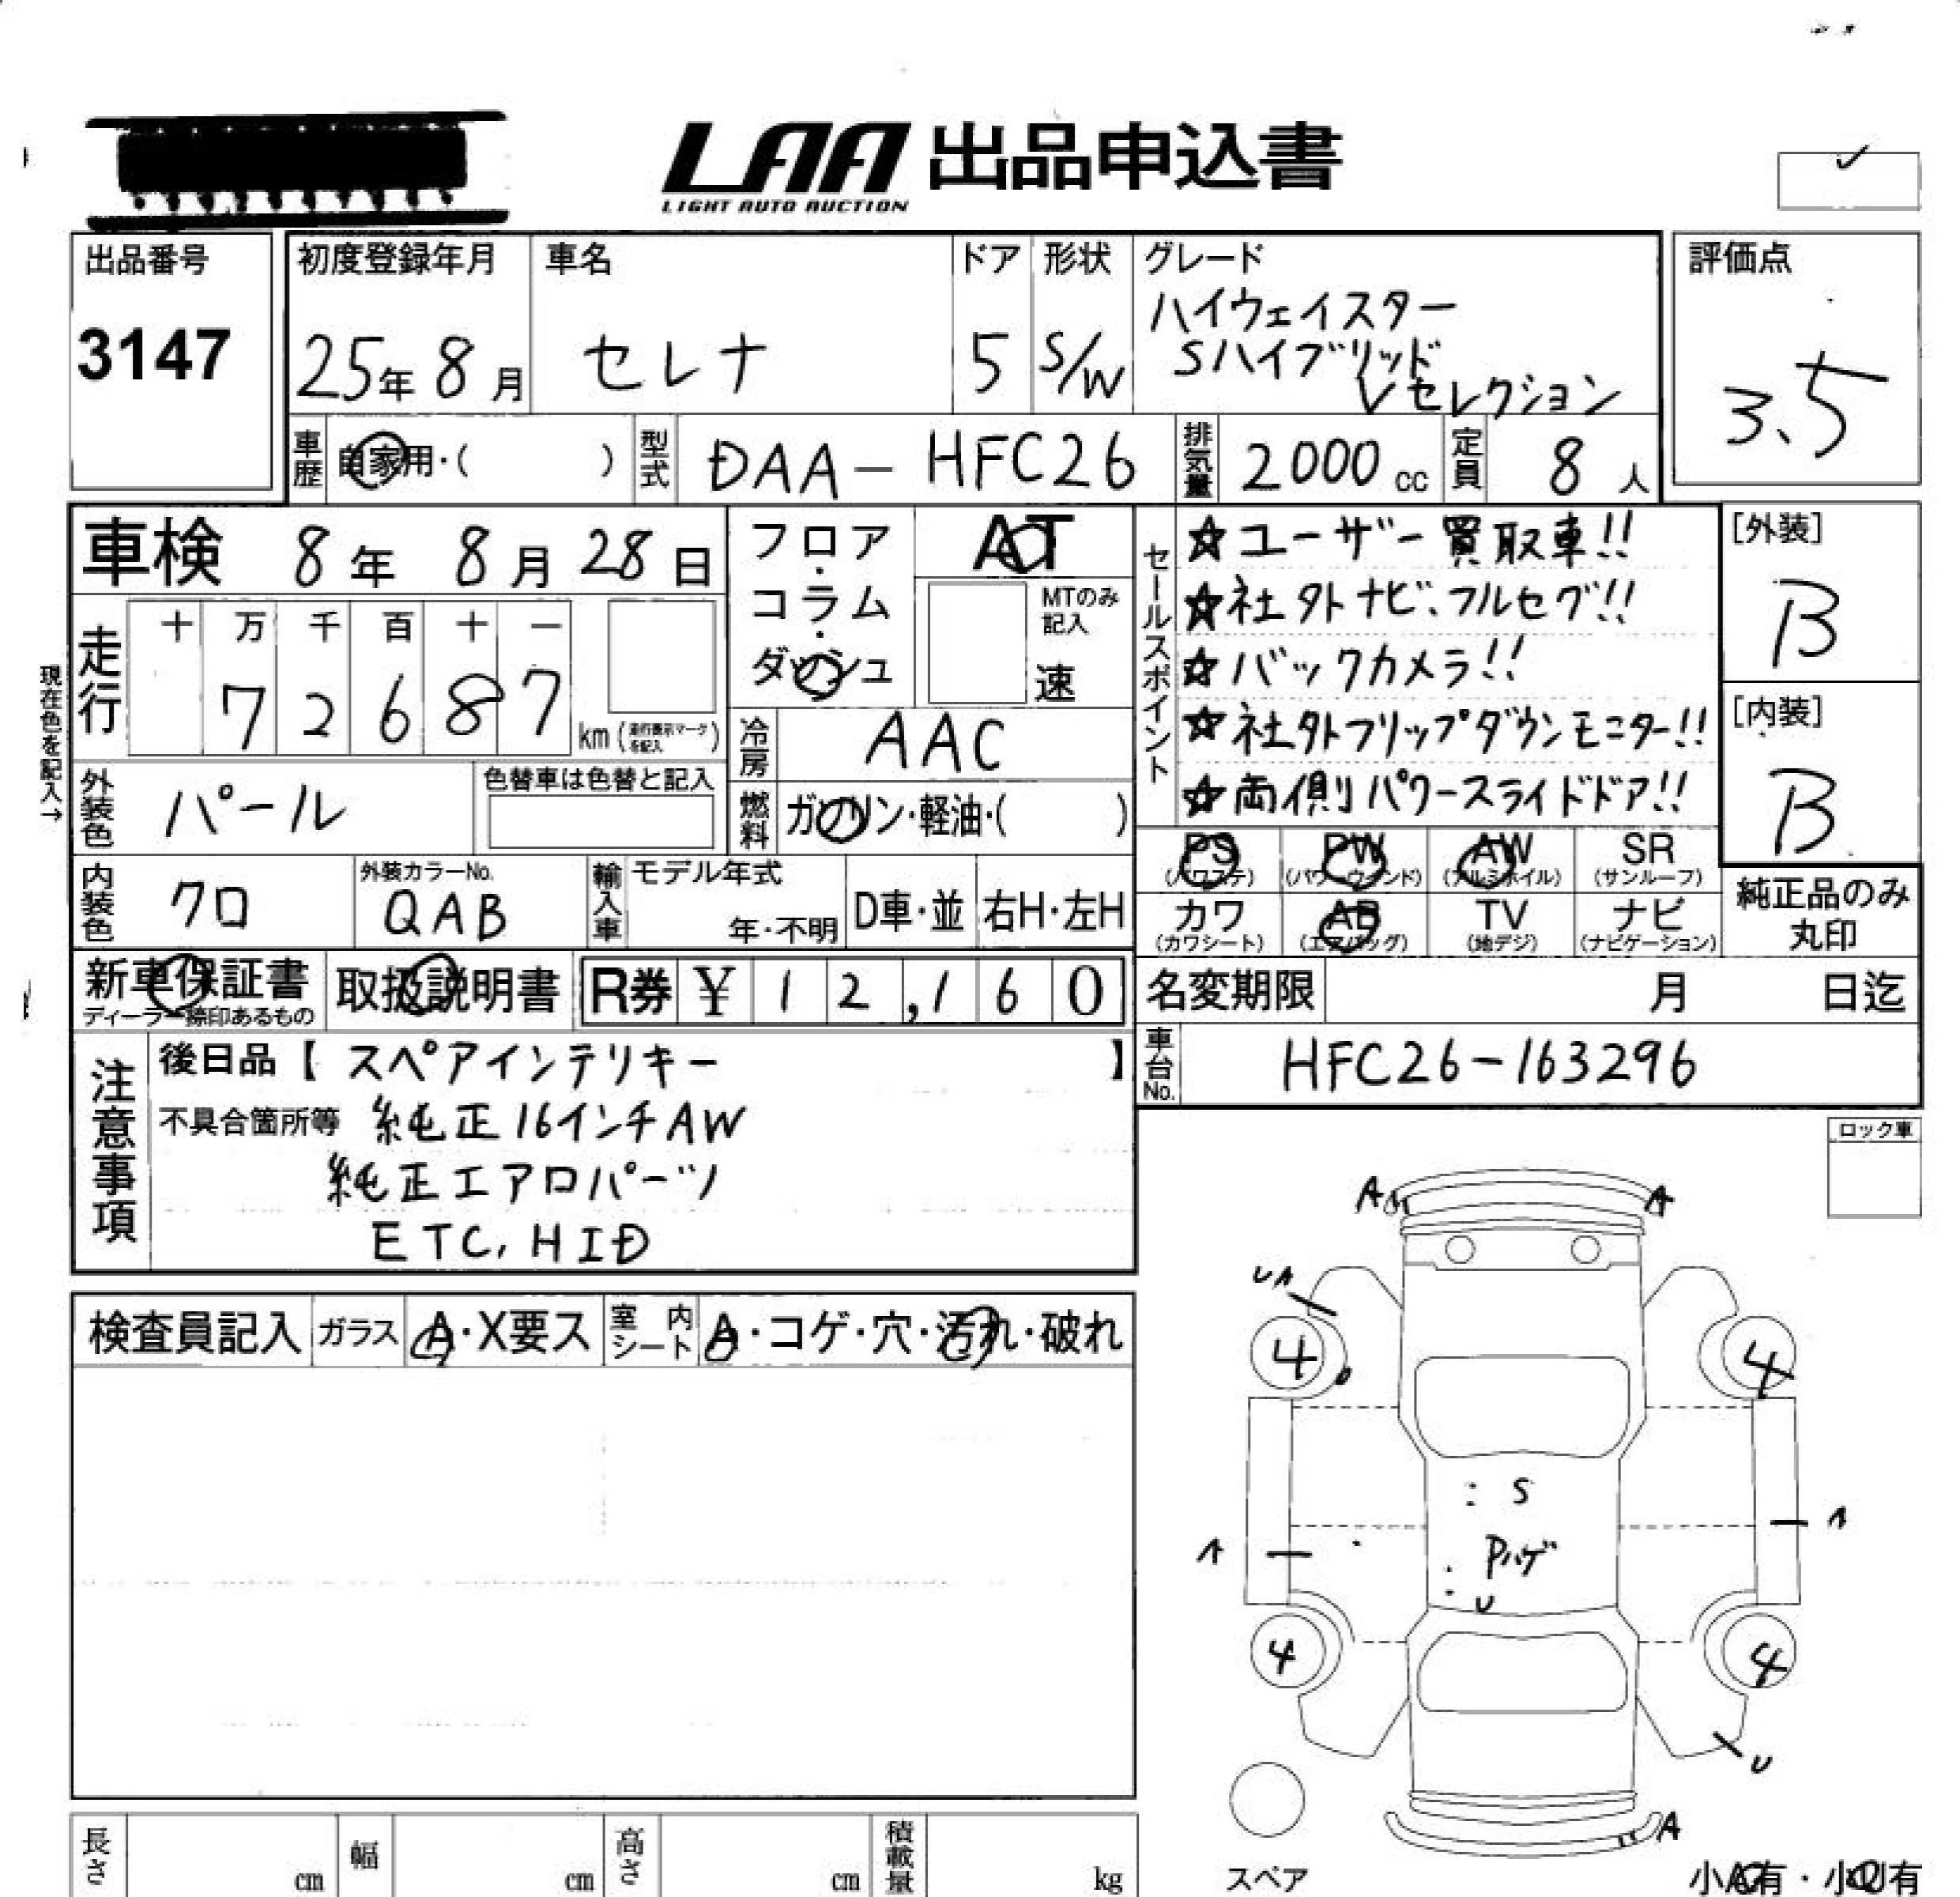 LAA 出品申込書
LIGHT AUTO AUCTION
出品番号
3147
初度登録年月
25年8月
車名
セレナ
ドア
5
形状
S/W
グレード
ハイウェイスター
Sハイブリッド
Vセレクション
評価点
3.5
車歴 自家用・( )
型式 DAA-HFC26
排気量 2000cc
定員 8人
車検 8年 8月 28日
走行
十 万 千 百 十 一
7 2 6 8 7 km (走行表示マークを記入)
現在色を記入→
フロア・コラム・ダッシュ
AT
MTのみ記入
速
冷房 AAC
燃料 ガソリン・軽油・( )
外装色 パール
色替車は色替と記入
内装色 クロ
外装カラーNo.
QAB
輸入車 モデル年式
年・不明
D車・並
右H・左H
セールスポイント
☆ユーザー買取車!!
☆社外ナビ、フルセグ!!
☆バックカメラ!!
☆社外フリップダウンモニター!!
☆両側パワースライドドア!!
[外装]
B
[内装]
B
PS PW AW SR
(パワステ) (パワーウィンド) (アルミホイル) (サンルーフ)
カワ AB TV ナビ
(カワシート) (エアバッグ) (地デジ) (ナビゲーション)
純正品のみ
丸印
新車保証書
ディーラー捺印あるもの
取扱説明書
R券 ¥12,160
名変期限 月 日迄
車台No. HFC26-163296
注意事項
後日品【 スペアインテリキー 】
不具合箇所等 純正16インチAW
純正エアロパーツ
ETC, HID
ロック車
検査員記入
ガラス A・X要ス
室内シート A・コゲ・穴・汚れ・破れ
A A
UA
4 4
S
Pハゲ
U
A A
4 4
U
A
スペア
小A有・小U有
長さ cm
幅 cm
高さ cm
積載量 kg